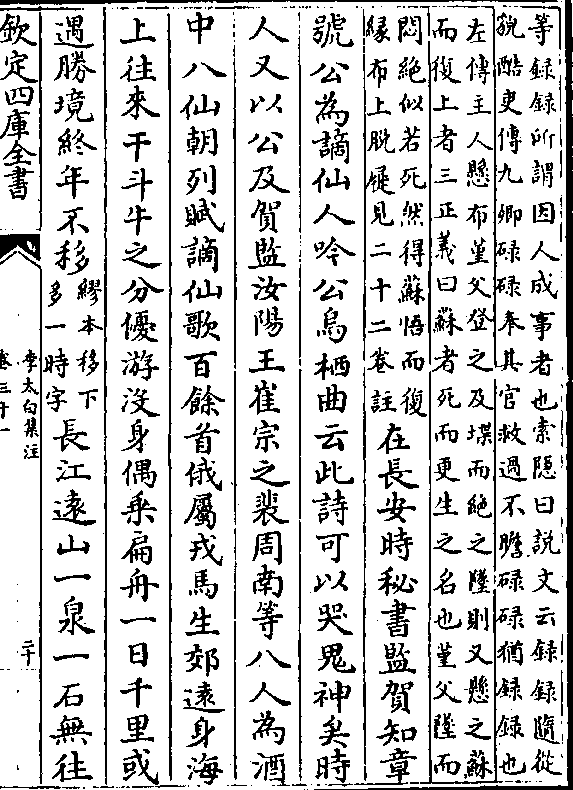 等録録所謂因人成事者也索隠曰説文云録録隨從
貌酷吏傳九卿碌碌奉其官救過不贍碌碌猶録録也
左傳主人懸布堇父登之及堞而絶之隊則又懸之蘇
而復上者三正義曰蘇者死而更生之名也堇父隊而
悶絶似若死然得蘇悟而復
縁布上脱屣見二十二卷註
在長安時秘書監賀知章
號公為謫仙人吟公烏棲曲云此詩可以哭鬼神矣時
人又以公及賀監汝陽王崔宗之裴周南等八人為酒
中八仙朝列賦謫仙歌百餘首俄屬戎馬生郊遠身海
上往來于斗牛之分優游没身偶乘扁舟一日千里或
遇勝境終年不移
繆本移下
多一時字
長江遠山一泉一石無往
欽定四庫全書
李太白集注
卷三十一
二十